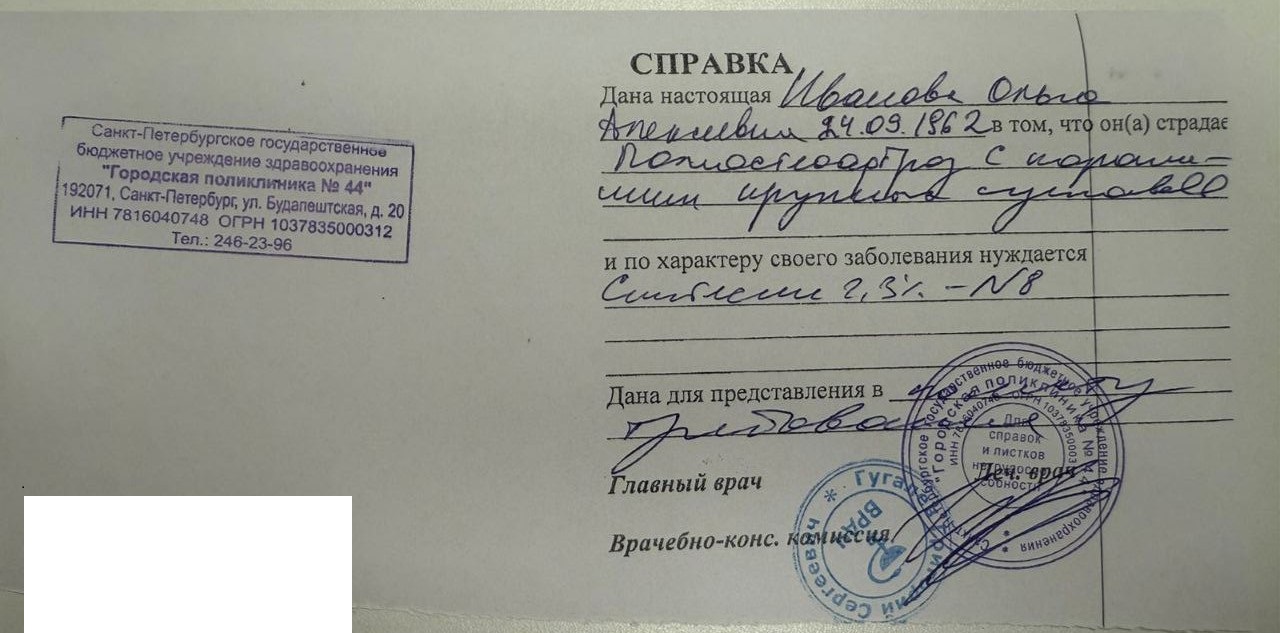 Санкт-Петербургское государственное
бюджетное учреждение здравоохранения
"Городская поликлиника № 44"
192071, Санкт-Петербург, ул. Будапештская, д. 20
ИНН 7816040748 ОГРН 1037835000312
Тел.: 246-23-96
СПРАВКА
Дана настоящая Иванова Ольга
Алексеевна 24.09.1962 в том, что он(а) страдае
с
крупных суставов
и по характеру своего заболевания нуждается
2,3% - N8
Дана для представления в
требования
Главный врач
Леч. врач
Врачебно-конс. комиссия
государственное бюджетное учреждение здравоохранения
"Городская поликлиника № 44"
ИНН 7816040748 ОГРН 1037835000312
Для
справок
и листков
нетрудоспо-
собности
Сергеевич
ВРАЧ